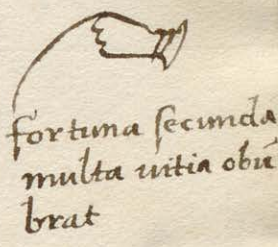 fortuna secunda
multa uitia obū
brat